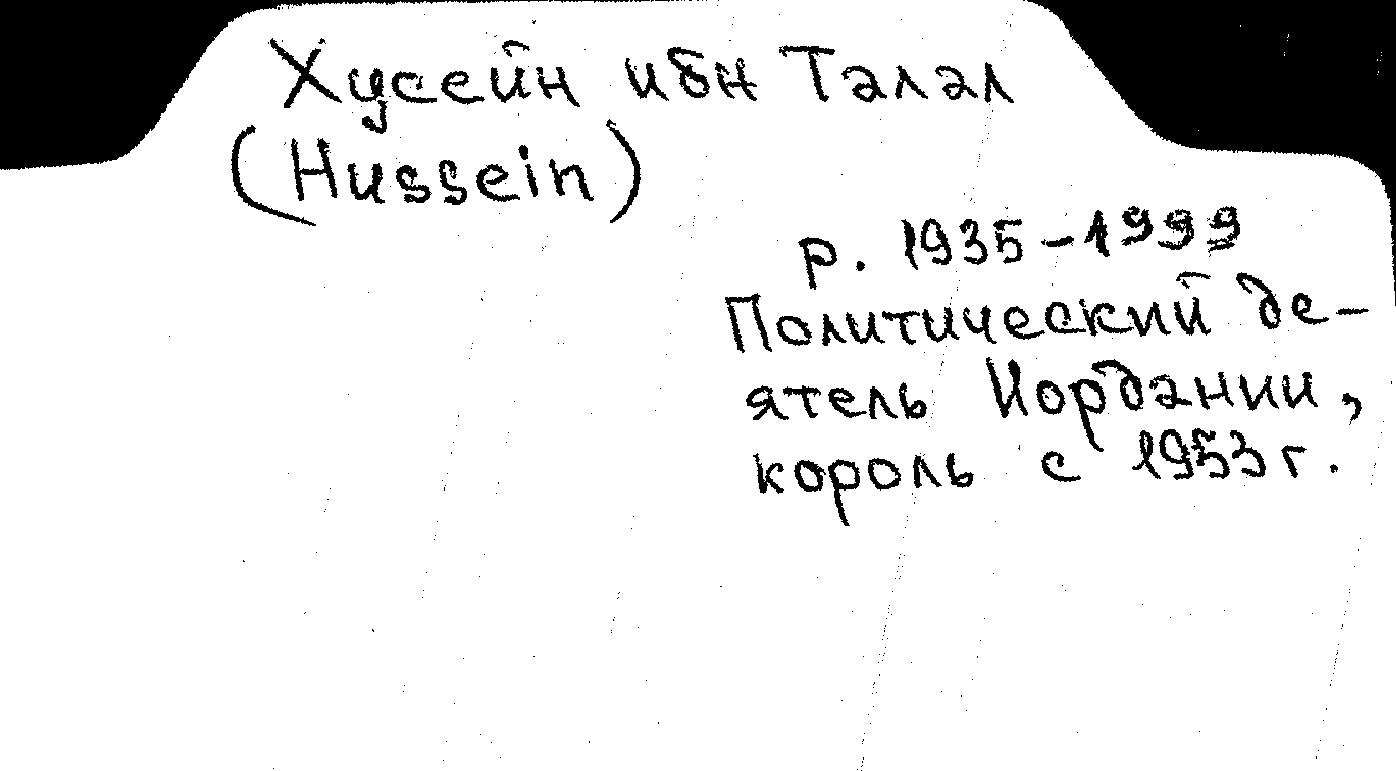 Хусейн ибн Талал
(Hussein)
р. 1935-1999
Политический де-
ятель Иордании,
король с 1953г.